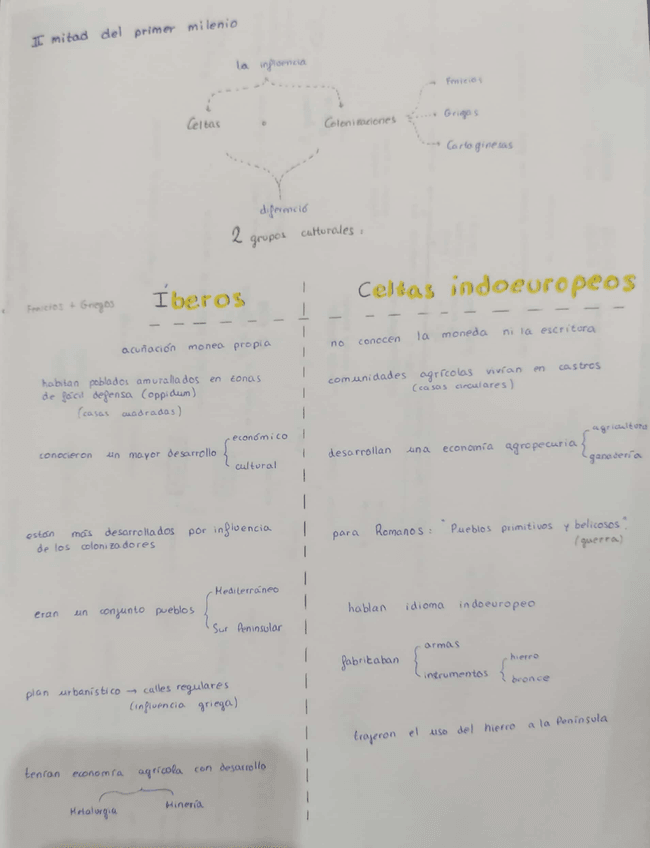 II mitad del primer milenio
la influencia
Celtas + Colonizaciones
Fenicios
Griegos
Cartagineses
diferenció
2 grupos culturales:
Fenicios + Griegos
Íberos
acuñación monea propia
habitan poblados amurallados en zonas
de fácil defensa (oppidum)
(casas cuadradas)
conocieron un mayor desarrollo
económico
cultural
están más desarrollados por influencia
de los colonizadores
eran un conjunto pueblos
Mediterráneo
Sur Peninsular
plan urbanístico → calles regulares
(influencia griega)
tenían economía agrícola con desarrollo
Metalurgia
Minería
Celtas indoeuropeos
no conocen la moneda ni la escritora
comunidades agrícolas vivían en castros
(casas circulares)
desarrollan una economía agropecuria
agricultura
ganadería
para Romanos: "Pueblos primitivos y belicosos".
(guerra)
hablan idioma indoeuropeo
fabrikaban
armas
instrumentos
hierro
bronce
trajeron el uso del hierro a la Península